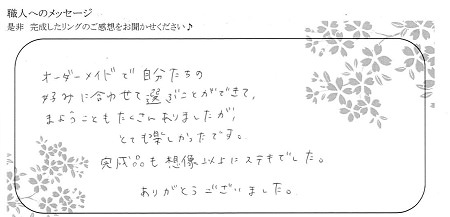 職人へのメッセージ
是非 完成したリングのご感想をお聞かせください♪
オーダーメイドで自分たちの
好みに合わせて選ぶことができて、
まようこともたくさんありましたが、
とても楽しかったです。
完成品も想像以上にステキでした。
ありがとうございました。